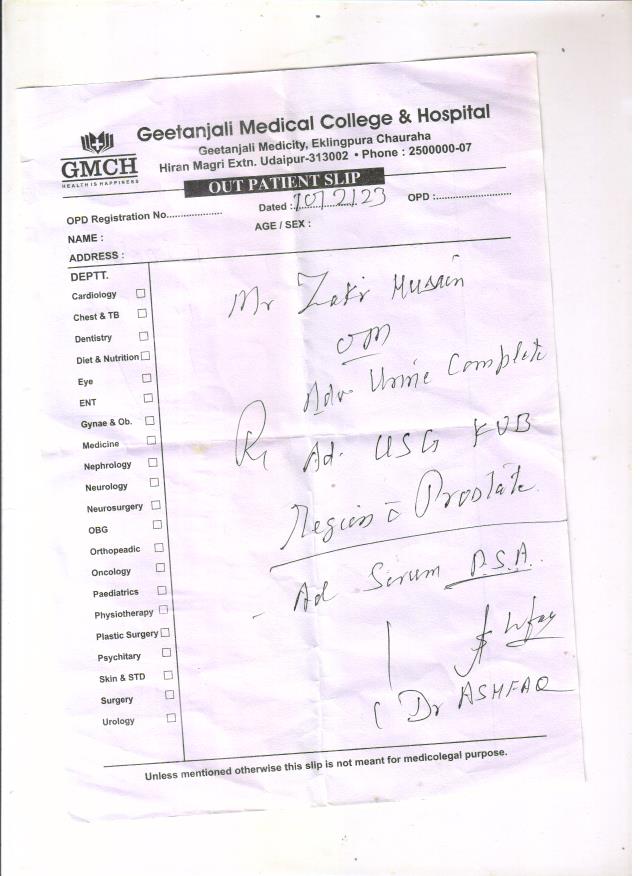 Geetanjali Medical College & Hospital
Geetanjali Medicity, Eklingpura Chauraha
Hiran Magri Extn. Udaipur-313002 • Phone : 2500000-07
GMCH
HEALTH IS HAPPINESS
OUT PATIENT SLIP
OPD Registration No................... Dated : 10/2/23 OPD :.........................
NAME : AGE / SEX :
ADDRESS :
DEPTT.
Cardiology
Chest & TB
Dentistry
Diet & Nutrition
Eye
ENT
Gynae & Ob.
Medicine
Nephrology
Neurology
Neurosurgery
OBG
Orthopeadic
Oncology
Paediatrics
Physiotherapy
Plastic Surgery
Psychitary
Skin & STD
Surgery
Urology
Mr Zakir Hussain
Adv Urine Complete
Rx Ad. USG KUB
Region c̄ Prostate
- Ad Serum P.S.A.
( Dr ASHFAQ
Unless mentioned otherwise this slip is not meant for medicolegal purpose.